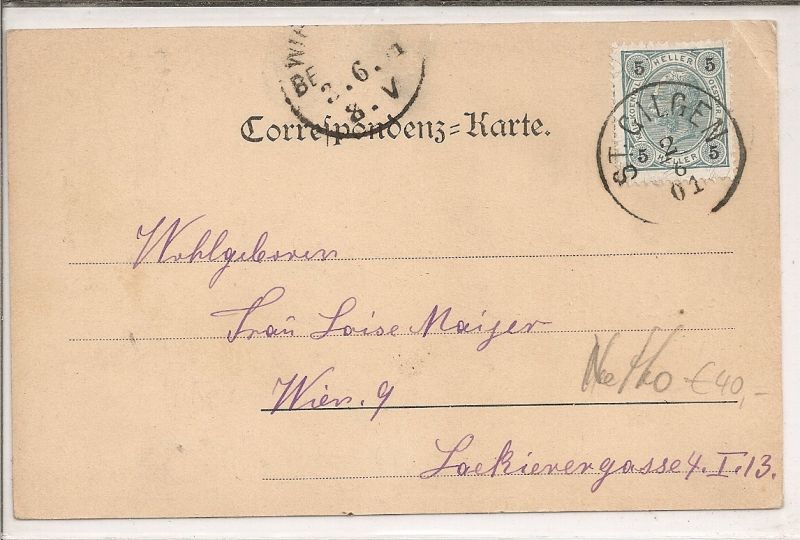 WI
BE
3.6.1
8.V
5 HELLER 5
5 HELLER 5
ST. GILGEN
2
6
01
Correspondenz=Karte.
Wohlgeboren
Frau Loise Maiyer
Wien. 9
Netto €40,-
Lackierergasse 4. I. 13.